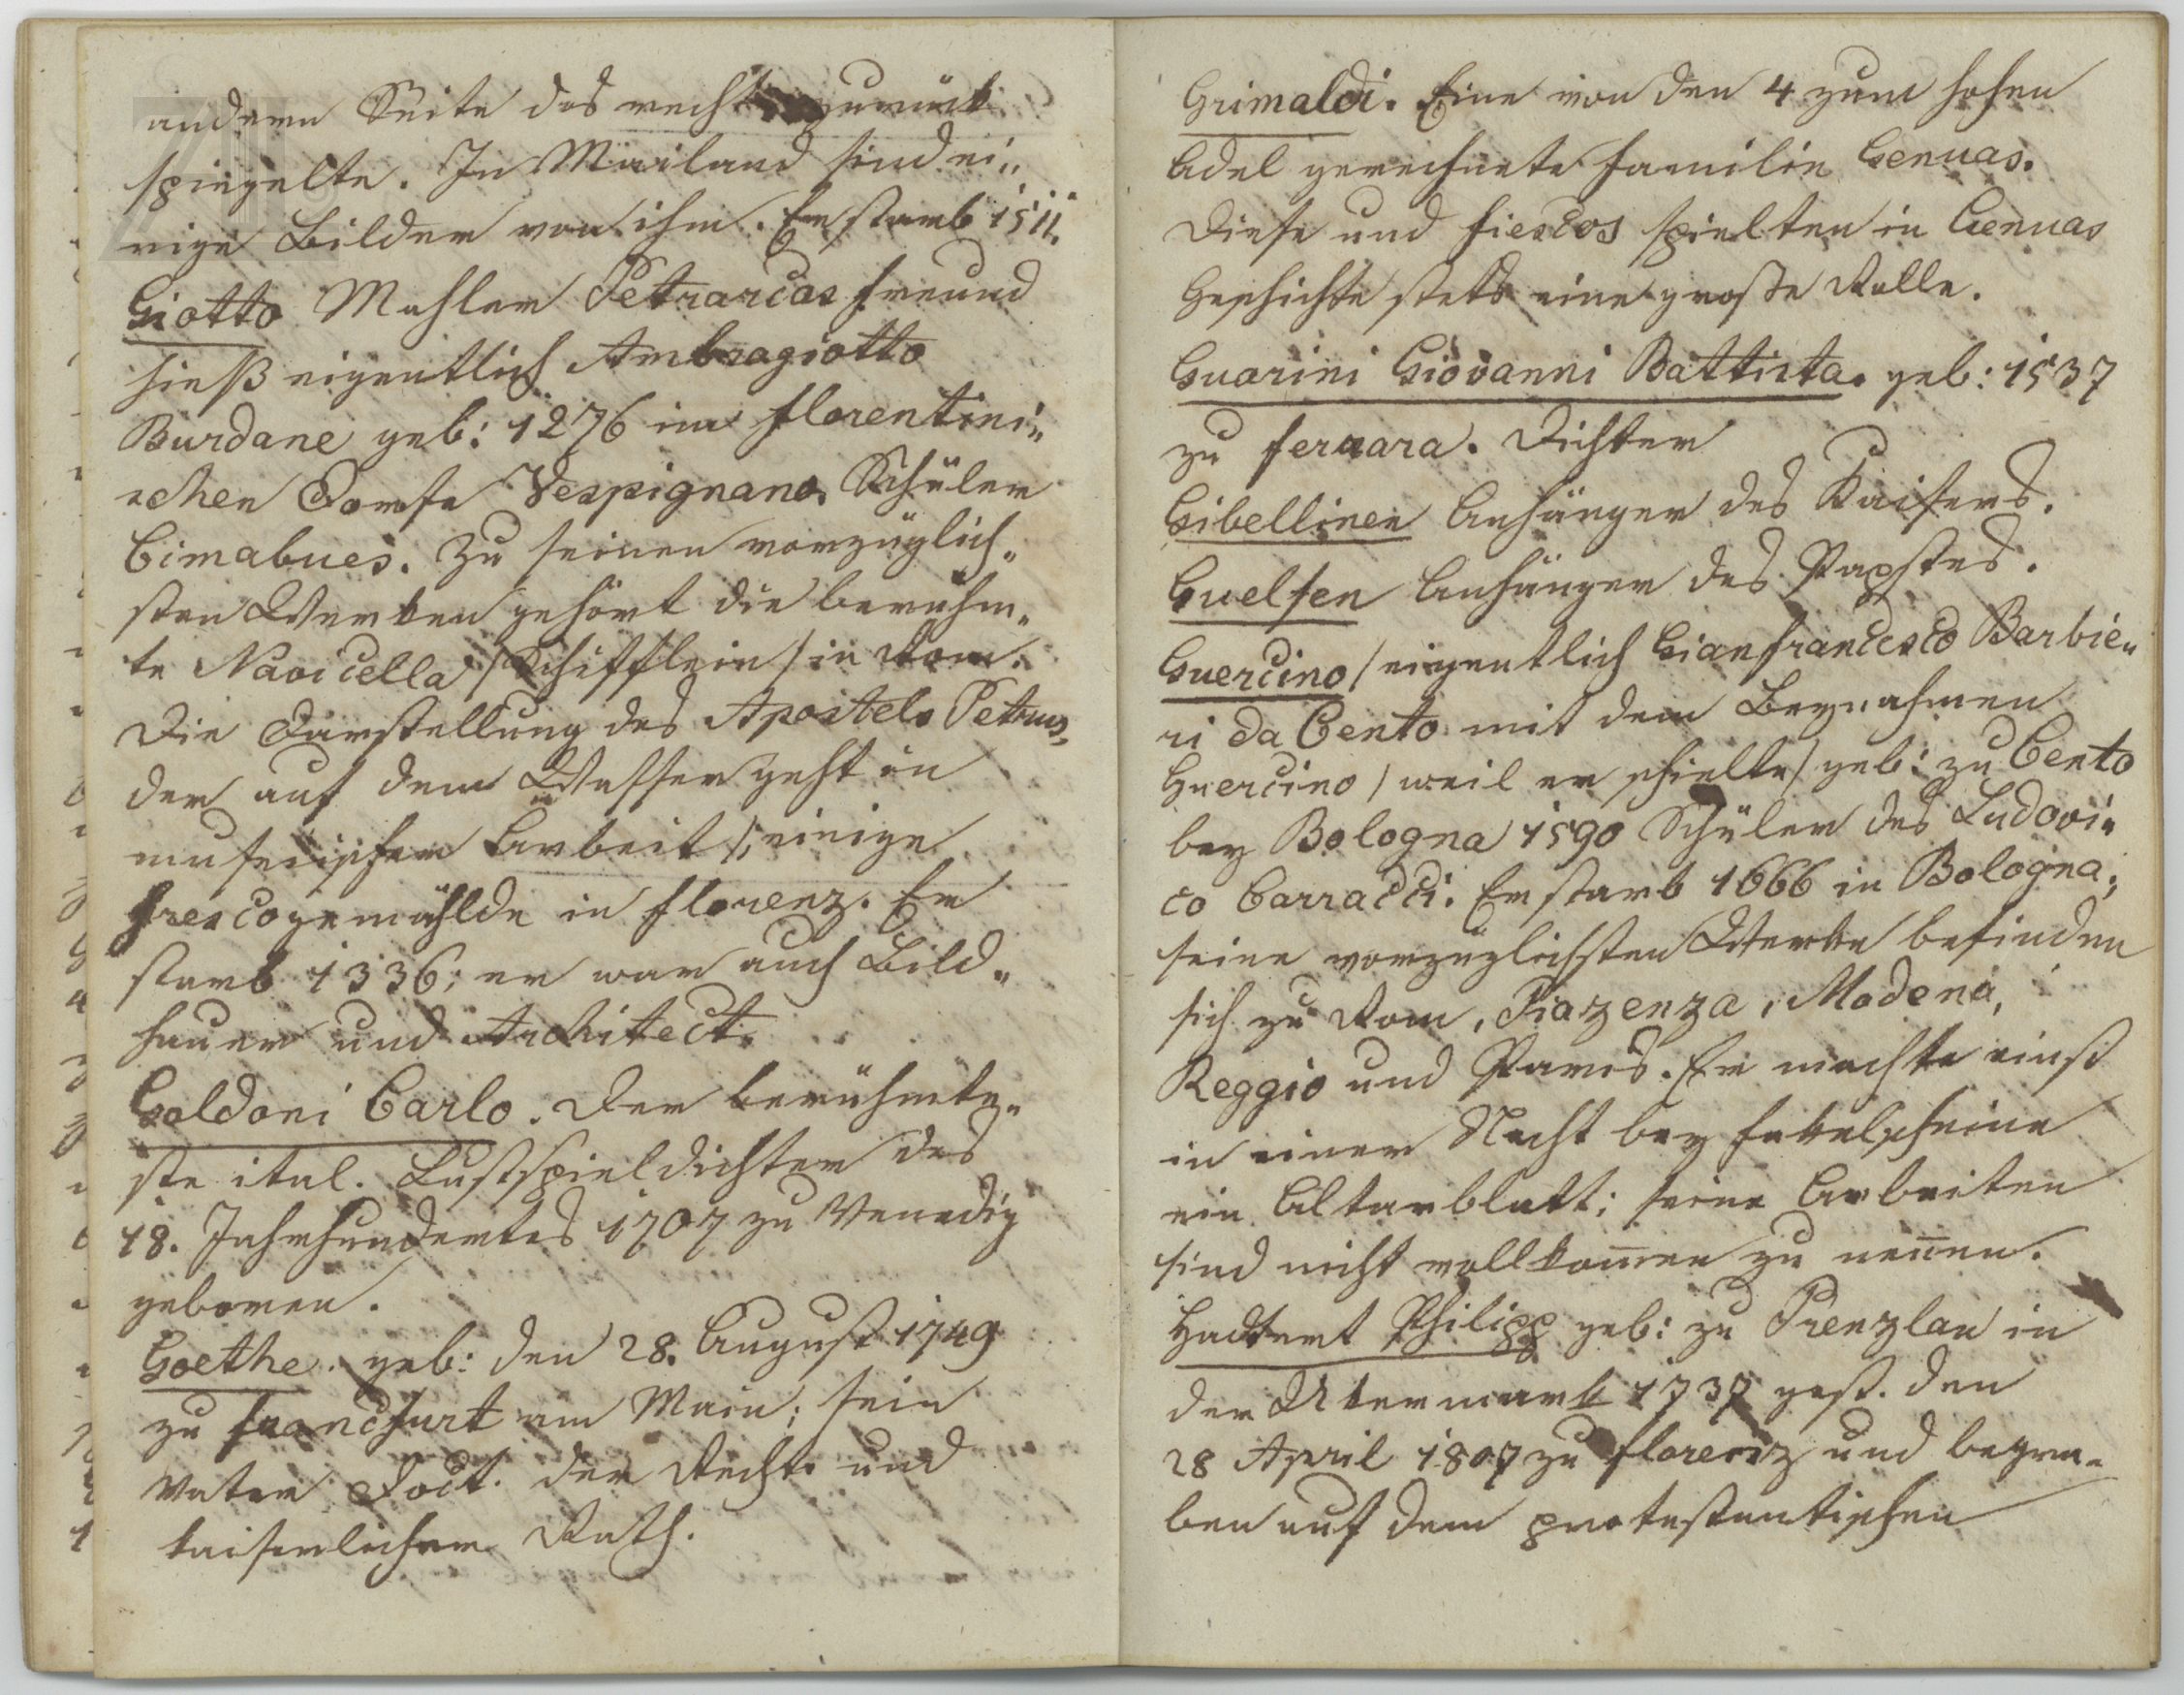 andern Seite das rechte zurück
spiegelte. In Mailand sind ei„
nige Bilder von ihm. Er starb 1511.
Giotto Mahler Petrarcas Freund
hieß eigentlich Ambrogiotto
Burdane geb: 1276 im florentini„
schen Dorfe Vespignano. Schüler
Cimabues. Zu seinen vorzüglich„
sten Werken gehört die berühm„
te Navicella /Schifflein/ in Rom.
Die Darstellung des Apostels Petrus,
der auf dem Wasser geht in
musivischer Arbeit/; einige
Frescogemählde in Florenz. Er
starb 1336; er war auch Bild„
hauer und Architect.
Goldoni Carlo. Der berühmte„
ste ital. Lustspieldichter des
18. Jahrhundertes 1707 zu Venedig
geboren.
Goethe. geb: den 28. August 1749
zu Francfurt am Main; sein
Vater Doct. der Rechte und
kaiserlicher Rath.
Grimaldi. Eine von den 4 zum hohen
Adel gerechnete Familie Genuas.
Diese und Fiescos spielten in Genuas
Geschichte stets eine große Rolle.
Guarini Giovanni Battista. geb: 1537
zu Ferrara. Dichter
Gibellinen Anhänger des Kaisers.
Guelfen Anhänger des Papstes.
Guercino /eigentlich Gianfrancesco Barbie„
ri da Cento mit dem Beynahmen
Guercino /weil er schielte/ geb: zu Cento
bey Bologna 1590 Schüler des Ludovi„
co Carracci. Er starb 1666 in Bologna;
seine vorzüglichsten Werke befinden
sich zu Rom, Piazenza, Modena,
Reggio und Paris. Er machte einst
in einer Nacht bey Fakelscheine
ein Altarblatt; seine Arbeiten
sind nicht vollkom̅en zu nen̅en.
Hackert Philipp geb: zu Prenzlau in
der Ukermark 1737 gest. den
28 April 1807 zu Florenz und begra„
ben auf dem protestantischen